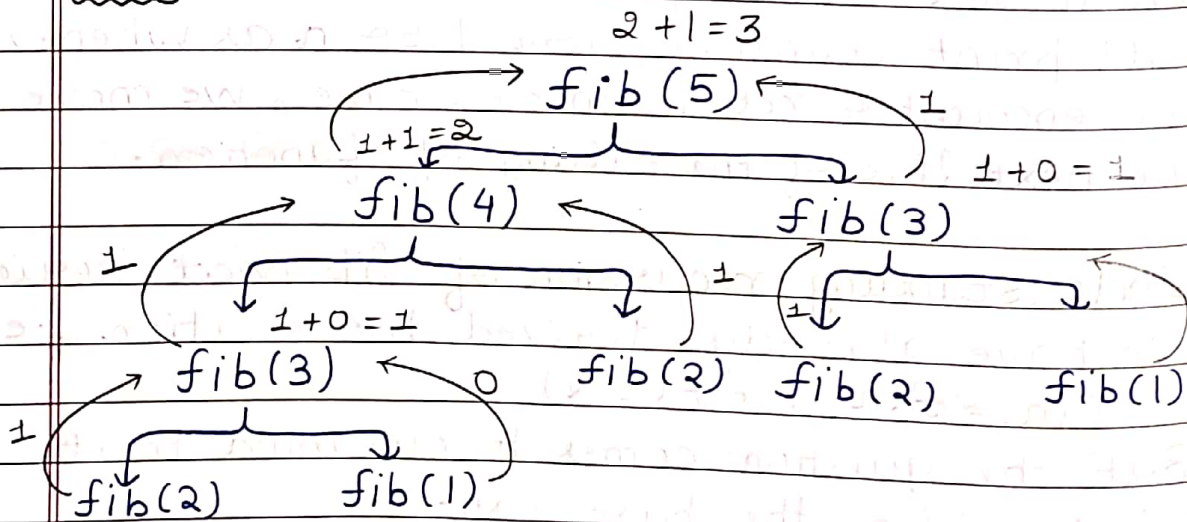 2 + 1 = 3
fib (5)
1
1+1 = 2
1 + 0 = 1
fib (4)
fib (3)
1
1
1
1 + 0 = 1
fib (3)
0
fib (2)
fib (2)
fib (1)
1
fib (2)
fib (1)